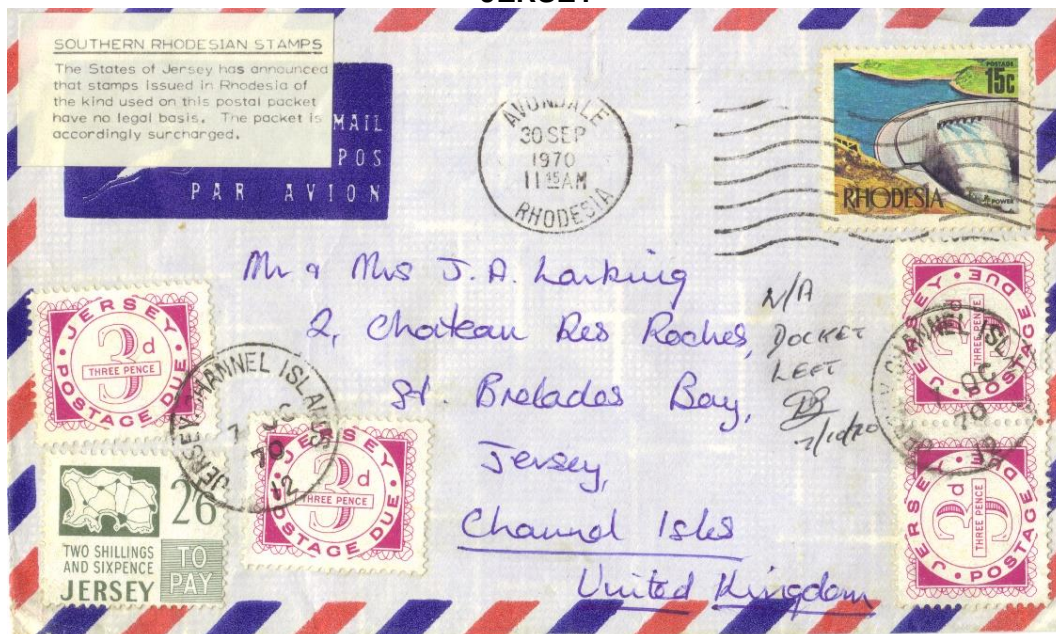 JERSEY
SOUTHERN RHODESIAN STAMPS
The States of Jersey has announced
that stamps issued in Rhodesia of
the kind used on this postal packet
have no legal basis. The packet is
accordingly surcharged.
MAIL
POS
PAR AVION
AVONDALE
30 SEP
1970
11 15 AM
RHODESIA
POSTAGE
15c
RHODESIA
POWER
Mr & Mrs J. A. Larking
2, Chateau Des Roches,
St. Brelades Bay,
Jersey,
Channel Isles
United Kingdom
N/A
DOCKET
LEFT
7/10/70
JERSEY
3d
THREE PENCE
POSTAGE DUE
JERSEY CHANNEL ISLANDS
7 OC
70
12
JERSEY
3d
THREE PENCE
POSTAGE DUE
2/6
TWO SHILLINGS
AND SIXPENCE
JERSEY
TO
PAY
JERSEY
3d
THREE PENCE
POSTAGE DUE
JERSEY CHANNEL ISLANDS
7 OC
70
12
JERSEY
3d
THREE PENCE
POSTAGE DUE